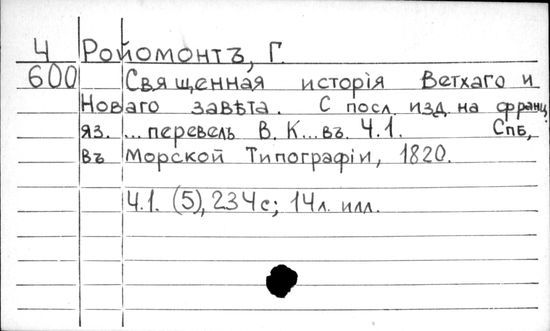 Ч Ройомонтъ, Г.
600 Священная исторія Ветхаго и
Новаго завѣта. С посл. изд. на франц.
яз. ... перевель В. К... въ. Ч.1. Спб,
въ Морской Типографіи, 1820.
Ч.1. (5), 234с; 14л. илл.